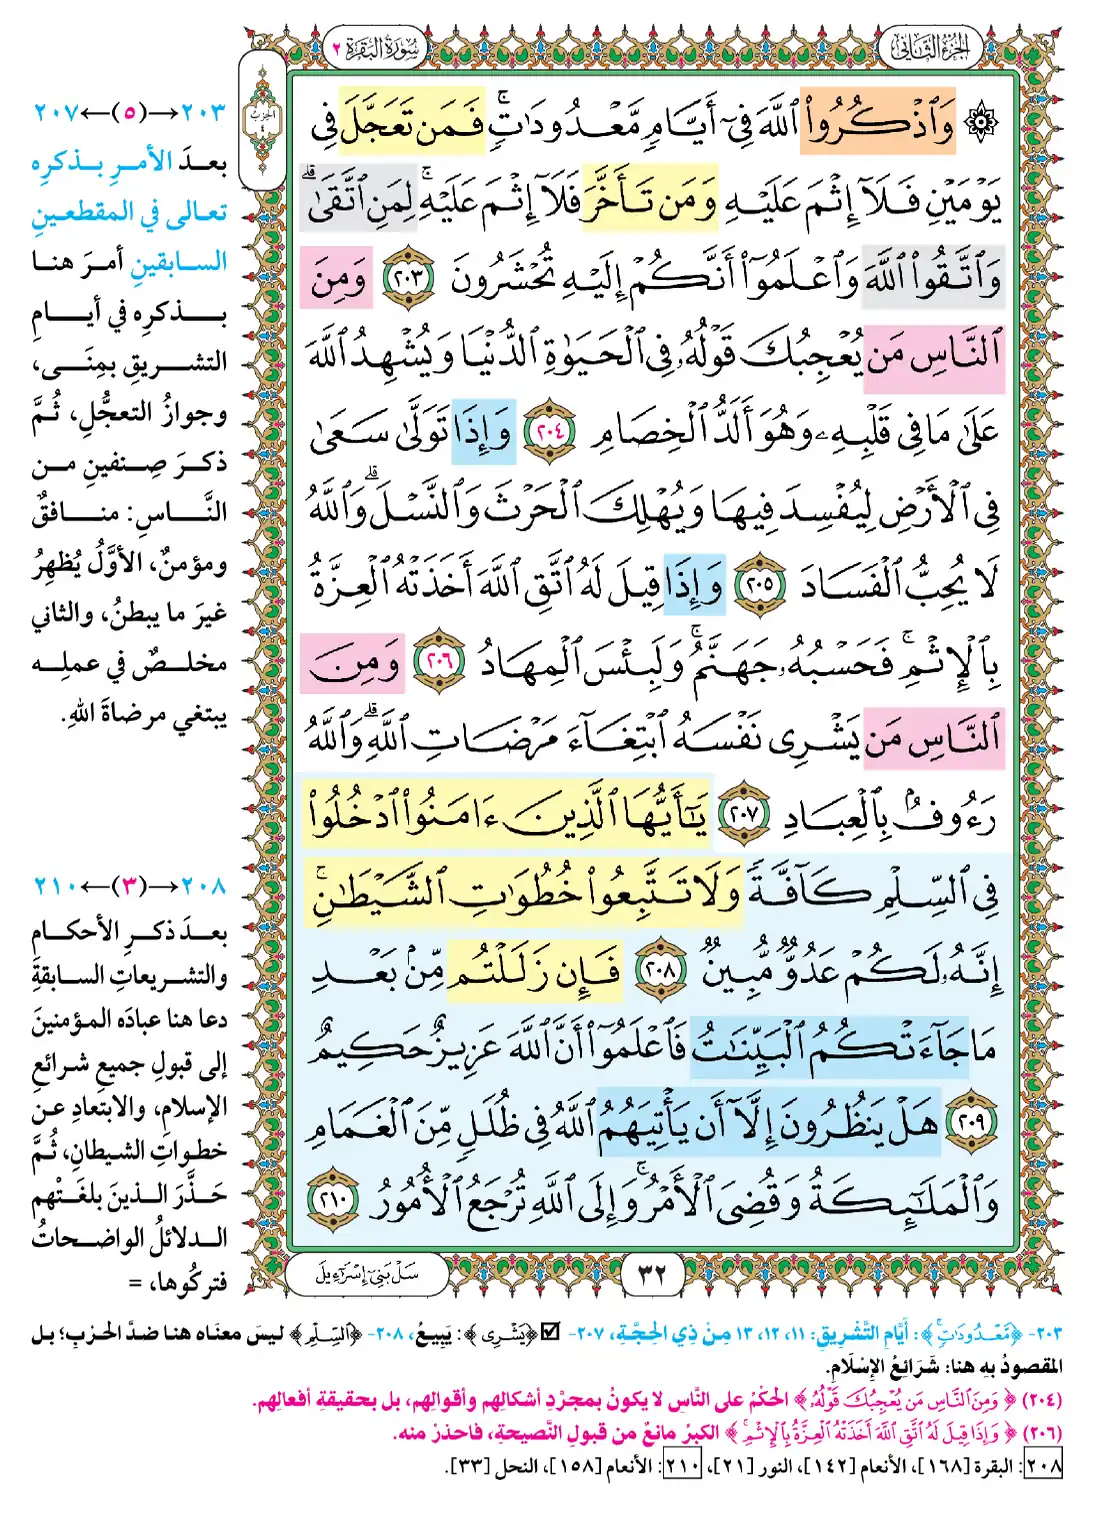 الجزء الثاني
سورة البقرة ٢
الحزب ٤
۞ وَٱذْكُرُوا۟ ٱللَّهَ فِىٓ أَيَّامٍ مَّعْدُودَٰتٍ ۚ فَمَن تَعَجَّلَ فِى
يَوْمَيْنِ فَلَآ إِثْمَ عَلَيْهِ وَمَن تَأَخَّرَ فَلَآ إِثْمَ عَلَيْهِ ۚ لِمَنِ ٱتَّقَىٰ ۗ
وَٱتَّقُوا۟ ٱللَّهَ وَٱعْلَمُوٓا۟ أَنَّكُمْ إِلَيْهِ تُحْشَرُونَ ٢٠٣ وَمِنَ
ٱلنَّاسِ مَن يُعْجِبُكَ قَوْلُهُۥ فِى ٱلْحَيَوٰةِ ٱلدُّنْيَا وَيُشْهِدُ ٱللَّهَ
عَلَىٰ مَا فِى قَلْبِهِۦ وَهُوَ أَلَدُّ ٱلْخِصَامِ ٢٠٤ وَإِذَا تَوَلَّىٰ سَعَىٰ
فِى ٱلْأَرْضِ لِيُفْسِدَ فِيهَا وَيُهْلِكَ ٱلْحَرْثَ وَٱلنَّسْلَ ۗ وَٱللَّهُ
لَا يُحِبُّ ٱلْفَسَادَ ٢٠٥ وَإِذَا قِيلَ لَهُ ٱتَّقِ ٱللَّهَ أَخَذَتْهُ ٱلْعِزَّةُ
بِٱلْإِثْمِ ۚ فَحَسْبُهُۥ جَهَنَّمُ ۚ وَلَبِئْسَ ٱلْمِهَادُ ٢٠٦ وَمِنَ
ٱلنَّاسِ مَن يَشْرِى نَفْسَهُ ٱبْتِغَآءَ مَرْضَاتِ ٱللَّهِ ۗ وَٱللَّهُ
رَءُوفٌۢ بِٱلْعِبَادِ ٢٠٧ يَٰٓأَيُّهَا ٱلَّذِينَ ءَامَنُوا۟ ٱدْخُلُوا۟
فِى ٱلسِّلْمِ كَآفَّةً وَلَا تَتَّبِعُوا۟ خُطُوَٰتِ ٱلشَّيْطَٰنِ ۚ
إِنَّهُۥ لَكُمْ عَدُوٌّ مُّبِينٌ ٢٠٨ فَإِن زَلَلْتُم مِّنۢ بَعْدِ
مَا جَآءَتْكُمُ ٱلْبَيِّنَٰتُ فَٱعْلَمُوٓا۟ أَنَّ ٱللَّهَ عَزِيزٌ حَكِيمٌ
٢٠٩ هَلْ يَنظُرُونَ إِلَّآ أَن يَأْتِيَهُمُ ٱللَّهُ فِى ظُلَلٍ مِّنَ ٱلْغَمَامِ
وَٱلْمَلَٰٓئِكَةُ وَقُضِىَ ٱلْأَمْرُ ۚ وَإِلَى ٱللَّهِ تُرْجَعُ ٱلْأُمُورُ ٢١٠
٣٢
سَلْ بَنِىٓ إِسْرَٰٓءِيلَ
٢٠٣→(٥)←٢٠٧
بعدَ الأمرِ بذكرِه
تعالى في المقطعينِ
السابقينِ أمرَ هنا
بذكرِه في أيامِ
التشريقِ بمِنَى،
وجوازُ التعجُّلِ، ثُمَّ
ذكرَ صِنفينِ من
النَّاسِ: منافقٌ
ومؤمنٌ، الأوَّلُ يُظهِرُ
غيرَ ما يبطنُ، والثاني
مخلصٌ في عملِه
يبتغي مرضاةَ اللهِ.
٢٠٨→(٣)←٢١٠
بعدَ ذكرِ الأحكامِ
والتشريعاتِ السابقةِ
دعا هنا عبادَه المؤمنينَ
إلى قبولِ جميعِ شرائعِ
الإسلامِ، والابتعادِ عن
خطواتِ الشيطانِ، ثُمَّ
حَذَّرَ الذينَ بلغَتْهم
الدلائلُ الواضحاتُ
فتركُوها، =
٢٠٣- ﴿مَّعْدُودَٰتٍ ۚ﴾: أَيَّامِ التَّشْرِيقِ: ١١، ١٢، ١٣ مِنْ ذِي الحِجَّةِ، ٢٠٧- ☑ ﴿يَشْرِى﴾: يَبِيعُ، ٢٠٨- ﴿ٱلسِّلْمِ﴾ ليسَ معنَاه هنا ضدَّ الحربِ؛ بل
المقصودُ بِهِ هنا: شَرَائِعُ الإِسْلَامِ.
(٢٠٤) ﴿وَمِنَ ٱلنَّاسِ مَن يُعْجِبُكَ قَوْلُهُۥ﴾ الحكْمُ على النَّاسِ لا يكونُ بمجرَّدِ أشكالِهم وأقوالِهم، بل بحقيقةِ أفعالِهم.
(٢٠٦) ﴿وَإِذَا قِيلَ لَهُ ٱتَّقِ ٱللَّهَ أَخَذَتْهُ ٱلْعِزَّةُ بِٱلْإِثْمِ ۚ﴾ الكبرُ مانعٌ من قبولِ النَّصيحةِ، فاحذرْ منه.
٢٠٨: البقرة [١٦٨]، الأنعام [١٤٢]، النور [٢١]، ٢١٠: الأنعام [١٥٨]، النحل [٣٣].